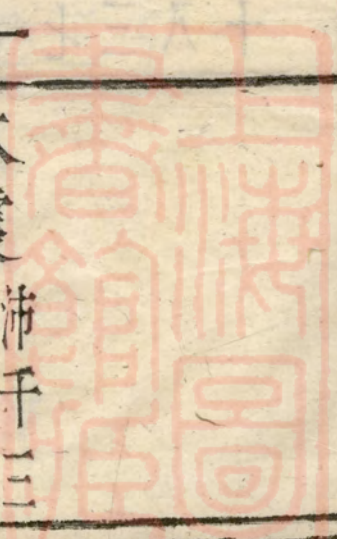 上海圖
書館藏
沛千三